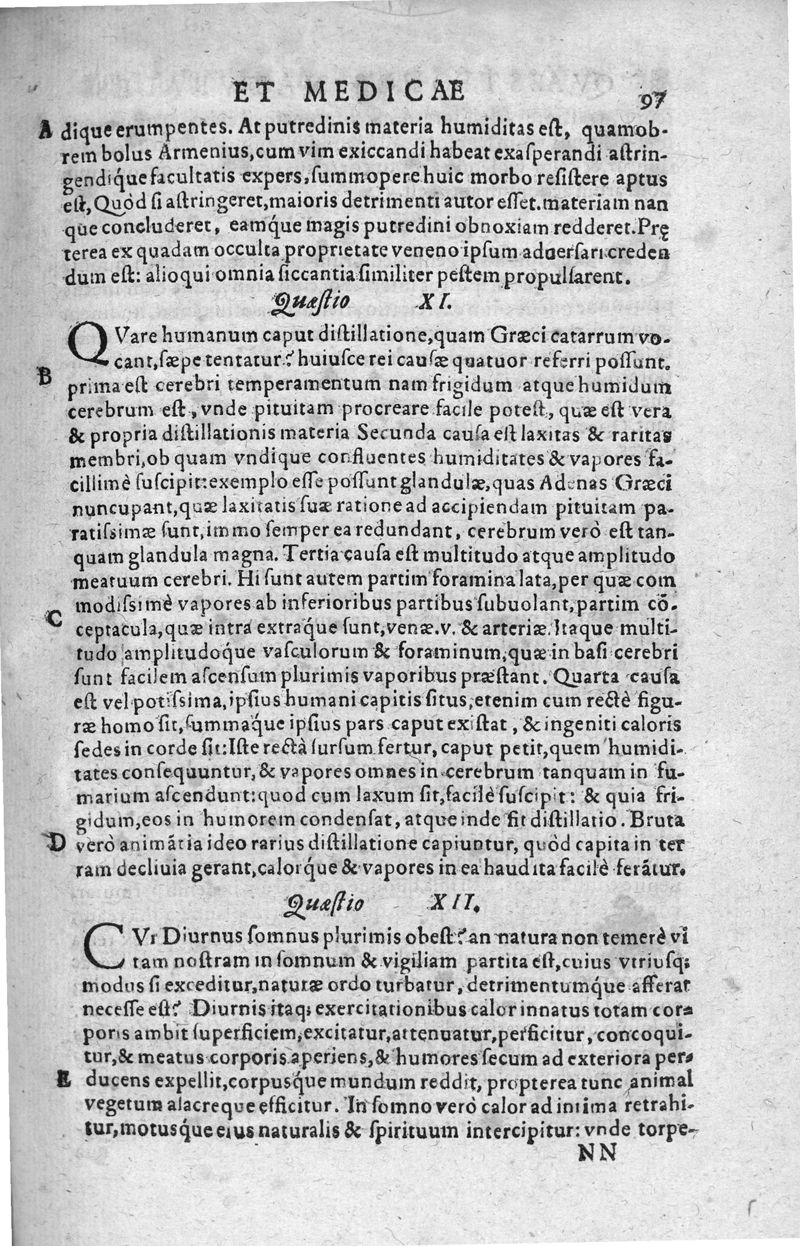 ET MEDICAE
97
A dique erumpentes. At putredinis materia humiditas est, quamob-
rem bolus Armenius,cum vim exiccandi habeat exasperandi astrin-
gendíque facultatis expers,summopere huic morbo resistere aptus
est,Quòd si astringeret,maioris detrimenti autor esset.materiam nan
que concluderet, eamq́ue magis putredini obnoxiam redderet.Prę
terea ex quadam occulta proprietate veneno ipsum aduersari creden
dum est: alioqui omnia siccantia similiter pestem propulsarent.
Quæstio XI.
QVare humanum caput distillatione,quam Græci catarrum vo-
cant,sæpe tentatur? huiusce rei causæ quatuor referri possunt.
B prima est cerebri temperamentum nam frigidum atque humidum
cerebrum est, vnde pituitam procreare facile potest, quæ est vera
& propria distillationis materia Secunda causa est laxitas & raritas
membri,ob quam vndique confluentes humiditates & vapores fa-
cillimè suscipit:exemplo esse possunt glandulæ,quas Adenas Græci
nuncupant,quæ laxitatis suæ ratione ad accipiendam pituitam pa-
ratissimæ sunt,immo semper ea redundant, cerebrum verò est tan-
quam glandula magna. Tertia causa est multitudo atque amplitudo
meatuum cerebri. Hi sunt autem partim foramina lata,per quæ com
C modissimè vapores ab inferioribus partibus subuolant,partim cõ-
ceptacula,quæ intra extraq́ue sunt,venæ.v. & arteriæ. Itaque multi-
tudo amplitudoque vasculorum & foraminum,quæ in basi cerebri
sunt facilem ascensum plurimis vaporibus præstant. Quarta causa
est vel potissima,ipsius humani capitis situs,etenim cum rectè figu-
ræ homo sit,summaq́ue ipsius pars caput existat, & ingeniti caloris
sedes in corde sit:Iste rectà sursum fertur, caput petit,quem humidi-
tates consequuntur,& vapores omnes in cerebrum tanquam in fu-
marium ascendunt:quod cum laxum sit,facilè suscipit: & quia fri-
gidum,eos in humorem condensat, atque inde fit distillatio. Bruta
D verò animãtia ideo rarius distillatione capiuntur, quòd capita in ter
ram decliuia gerant,calorq́ue & vapores in ea haud ita facilè ferãtur.
Quæstio XII.
CVr Diurnus somnus plurimis obest? an natura non temerè vi
tam nostram in somnum & vigiliam partita est,cuius vtriusq;
modus si exceditur,naturæ ordo turbatur, detrimentumq́ue afferat
necesse est? Diurnis itaq; exercitationibus calor innatus totam cor-
poris ambit superficiem,excitatur,attenuatur,perficitur, concoqui-
tur,& meatus corporis aperiens,& humores secum ad exteriora per-
E ducens expellit,corpusq́ue mundum reddit, propterea tunc animal
vegetum alacreque efficitur. In somno verò calor ad intima retrahi-
tur,motusq́ue eius naturalis & spirituum intercipitur: vnde torpe-
NN